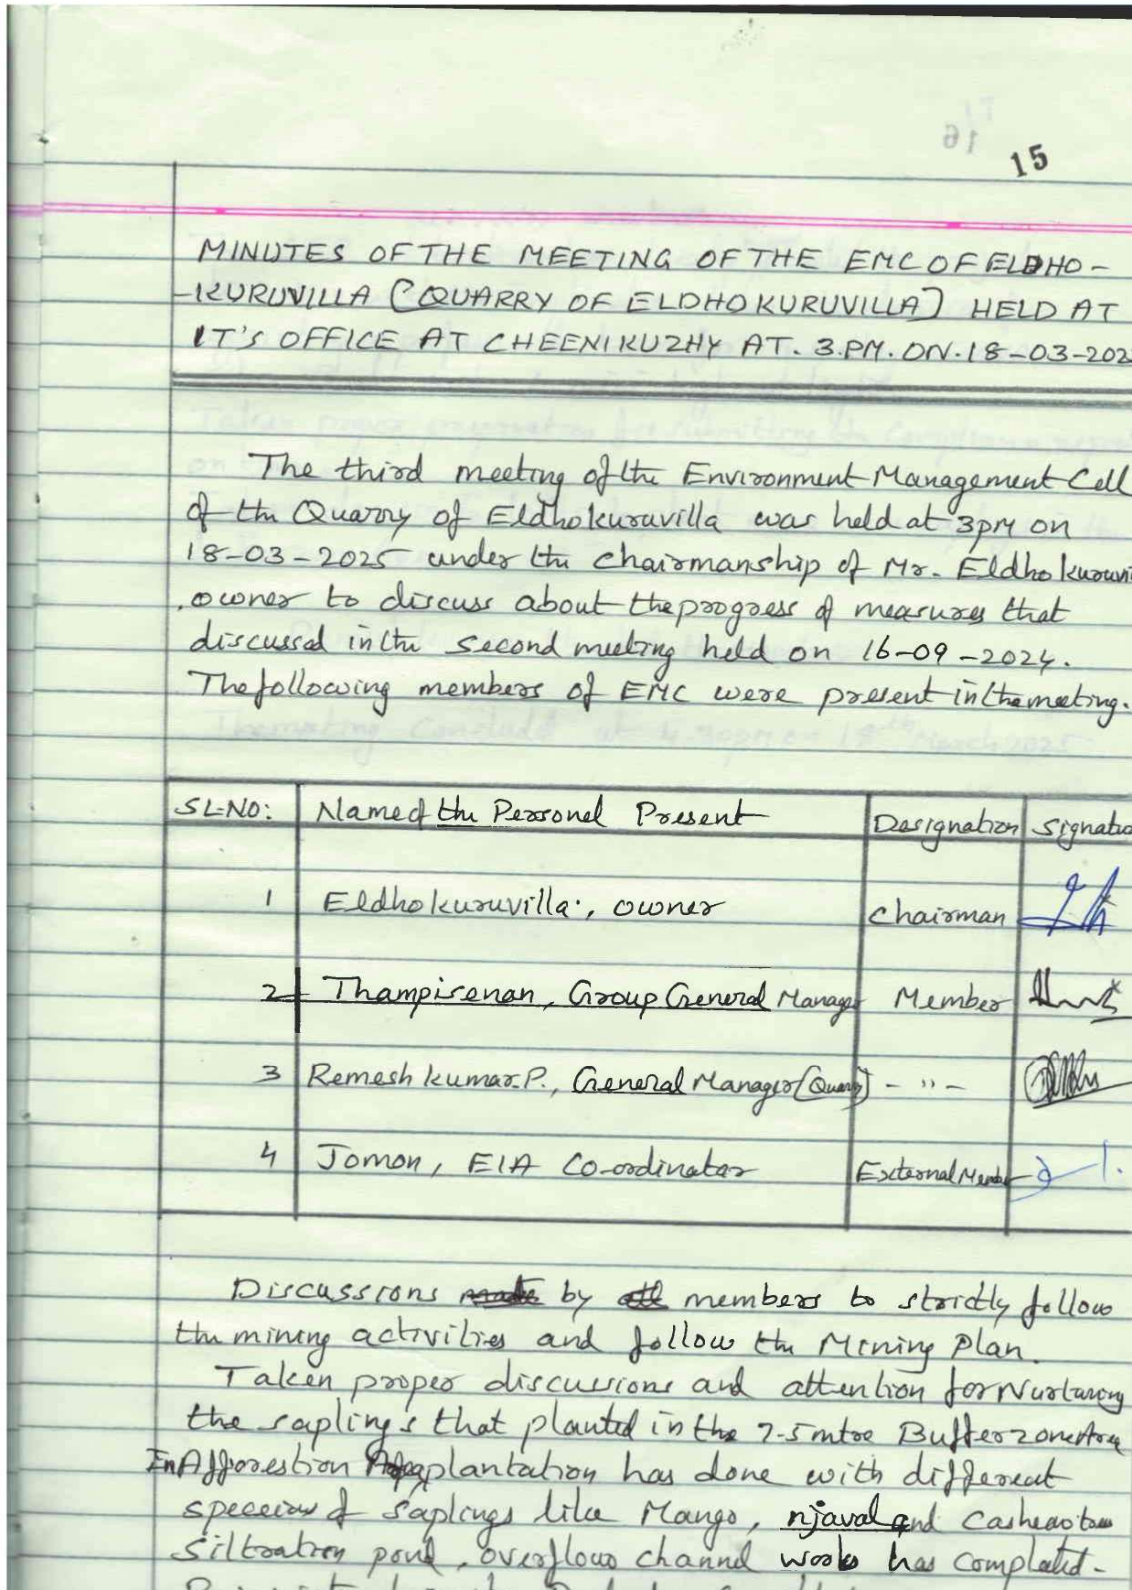 15
MINUTES OF THE MEETING OF THE EMC OF ELDHO-
-KURUVILLA (QUARRY OF ELDHO KURUVILLA) HELD AT
IT'S OFFICE AT CHEENIKUZHY AT. 3.PM. ON. 18-03-202
The third meeting of the Environment Management Cell
of the Quarry of Eldhokuruvilla was held at 3pm on
18-03-2025 under the chairmanship of Mr. Eldho kuruvi
.owner to discuss about the progress of measures that
discussed in the second meeting held on 16-09-2024.
The following members of EMC were present in the meeting.
SL.NO: Name of the Personel Present Designation Signatu
1 Eldhokuruvilla., owner Chairman
2 Thampirenan, Group General Manager Member
3 Remesh kumar.P., General Manager (Quarry) - " -
4 Jomon, EIA Co-ordinator External Member
Discussions made by all members to strictly follow
the mining activities and follow the Mining Plan.
Taken proper discussions and attention for Nurturing
the saplings that planted in the 7.5 mtre Buffer zone Area
In Afforestion plantation has done with different
of Saplings like Mango, njaval and
Siltration pond, overflow channel works has completed.